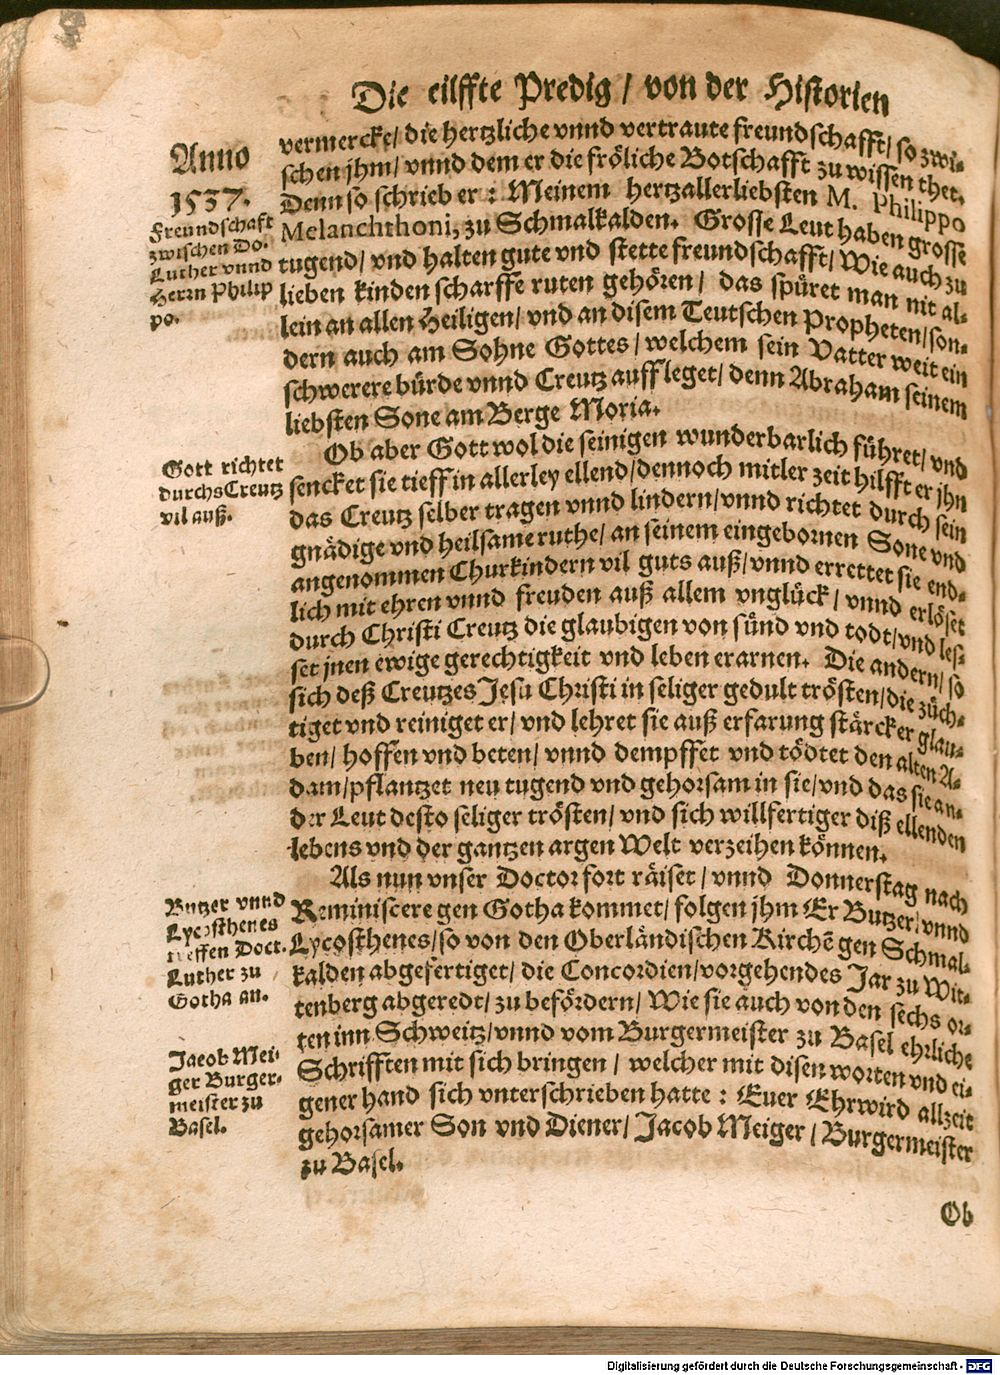 Die eilffte Predig / von der Historien
Anno
1537.
Freundschaft
zwischen Do.
Luther vnnd
Herrn Philip
po.
vermercke/ die hertzliche vnnd vertraute freundschafft/ so zwi-
schen jhm/ vnnd dem er die fröliche Botschafft zu wissen thet.
Denn so schrieb er : Meinem hertzallerliebsten M. Philippo
Melanchthoni, zu Schmalkalden. Grosse Leut haben grosse
tugend/ vnd halten gute vnd stette freundschafft/ Wie auch zu
lieben kinden scharffe ruten gehören/ das spüret man nit al-
lein an allen Heiligen/ vnd an disem Teutschen Propheten/ son-
dern auch am Sohne Gottes/ welchem sein Vatter weit ein
schwerere bürde vnnd Creutz auffleget/ denn Abraham seinem
liebsten Sone am Berge Moria.
Gott richtet
durchs Creutz
vil auß.
Ob aber Gott wol die seinigen wunderbarlich führet/ vnd
sencket sie tieff in allerley ellend/ dennoch mitler zeit hilfft er jhn
das Creutz selber tragen vnnd lindern/ vnnd richtet durch sein
gnädige vnd heilsame ruthe/ an seinem eingebornen Sone vnd
angenommen Churkindern vil guts auß/ vnnd errettet sie end-
lich mit ehren vnnd freuden auß allem vnglück/ vnnd erlöset
durch Christi Creutz die glaubigen von sünd vnd todt/ vnd les-
set jnen ewige gerechtigkeit vnd leben erarnen. Die andern/ so
sich deß Creutzes Jesu Christi in seliger gedult trösten/ die züch-
tiget vnd reiniget er/ vnd lehret sie auß erfarung stärcker glau-
ben/ hoffen vnd beten/ vnnd dempffet vnd tödtet den alten A-
dam/ pflantzet neu tugend vnd gehorsam in sie/ vnd das sie an-
der Leut desto seliger trösten/ vnd sich willfertiger diß ellenden
lebens vnd der gantzen argen Welt verzeihen können.
Butzer vnnd
Lycosthenes
treffen Doct.
Luther zu
Gotha an.
Als nun vnser Doctor fort räiset/ vnnd Donnerstag nach
Reminiscere gen Gotha kommet/ folgen jhm Er Butzer/ vnnd
Lycosthenes/ so von den Oberländischen Kirchē gen Schmal-
kalden abgefertiget/ die Concordien/ vorgehendes Jar zu Wit-
tenberg abgeredt/ zu befördern/ Wie sie auch von den sechs or-
ten inn Schweitz/ vnnd vom Burgermeister zu Basel ehrliche
Schrifften mit sich bringen / welcher mit disen worten vnd ei-
gener hand sich vnterschrieben hatte : Euer Ehrwird allzeit
gehorsamer Son vnd Diener/ Jacob Meiger / Burgermeister
zu Basel.
Jacob Mei-
ger Burger-
meister zu
Basel.
Ob
Digitalisierung gefördert durch die Deutsche Forschungsgemeinschaft - DFG